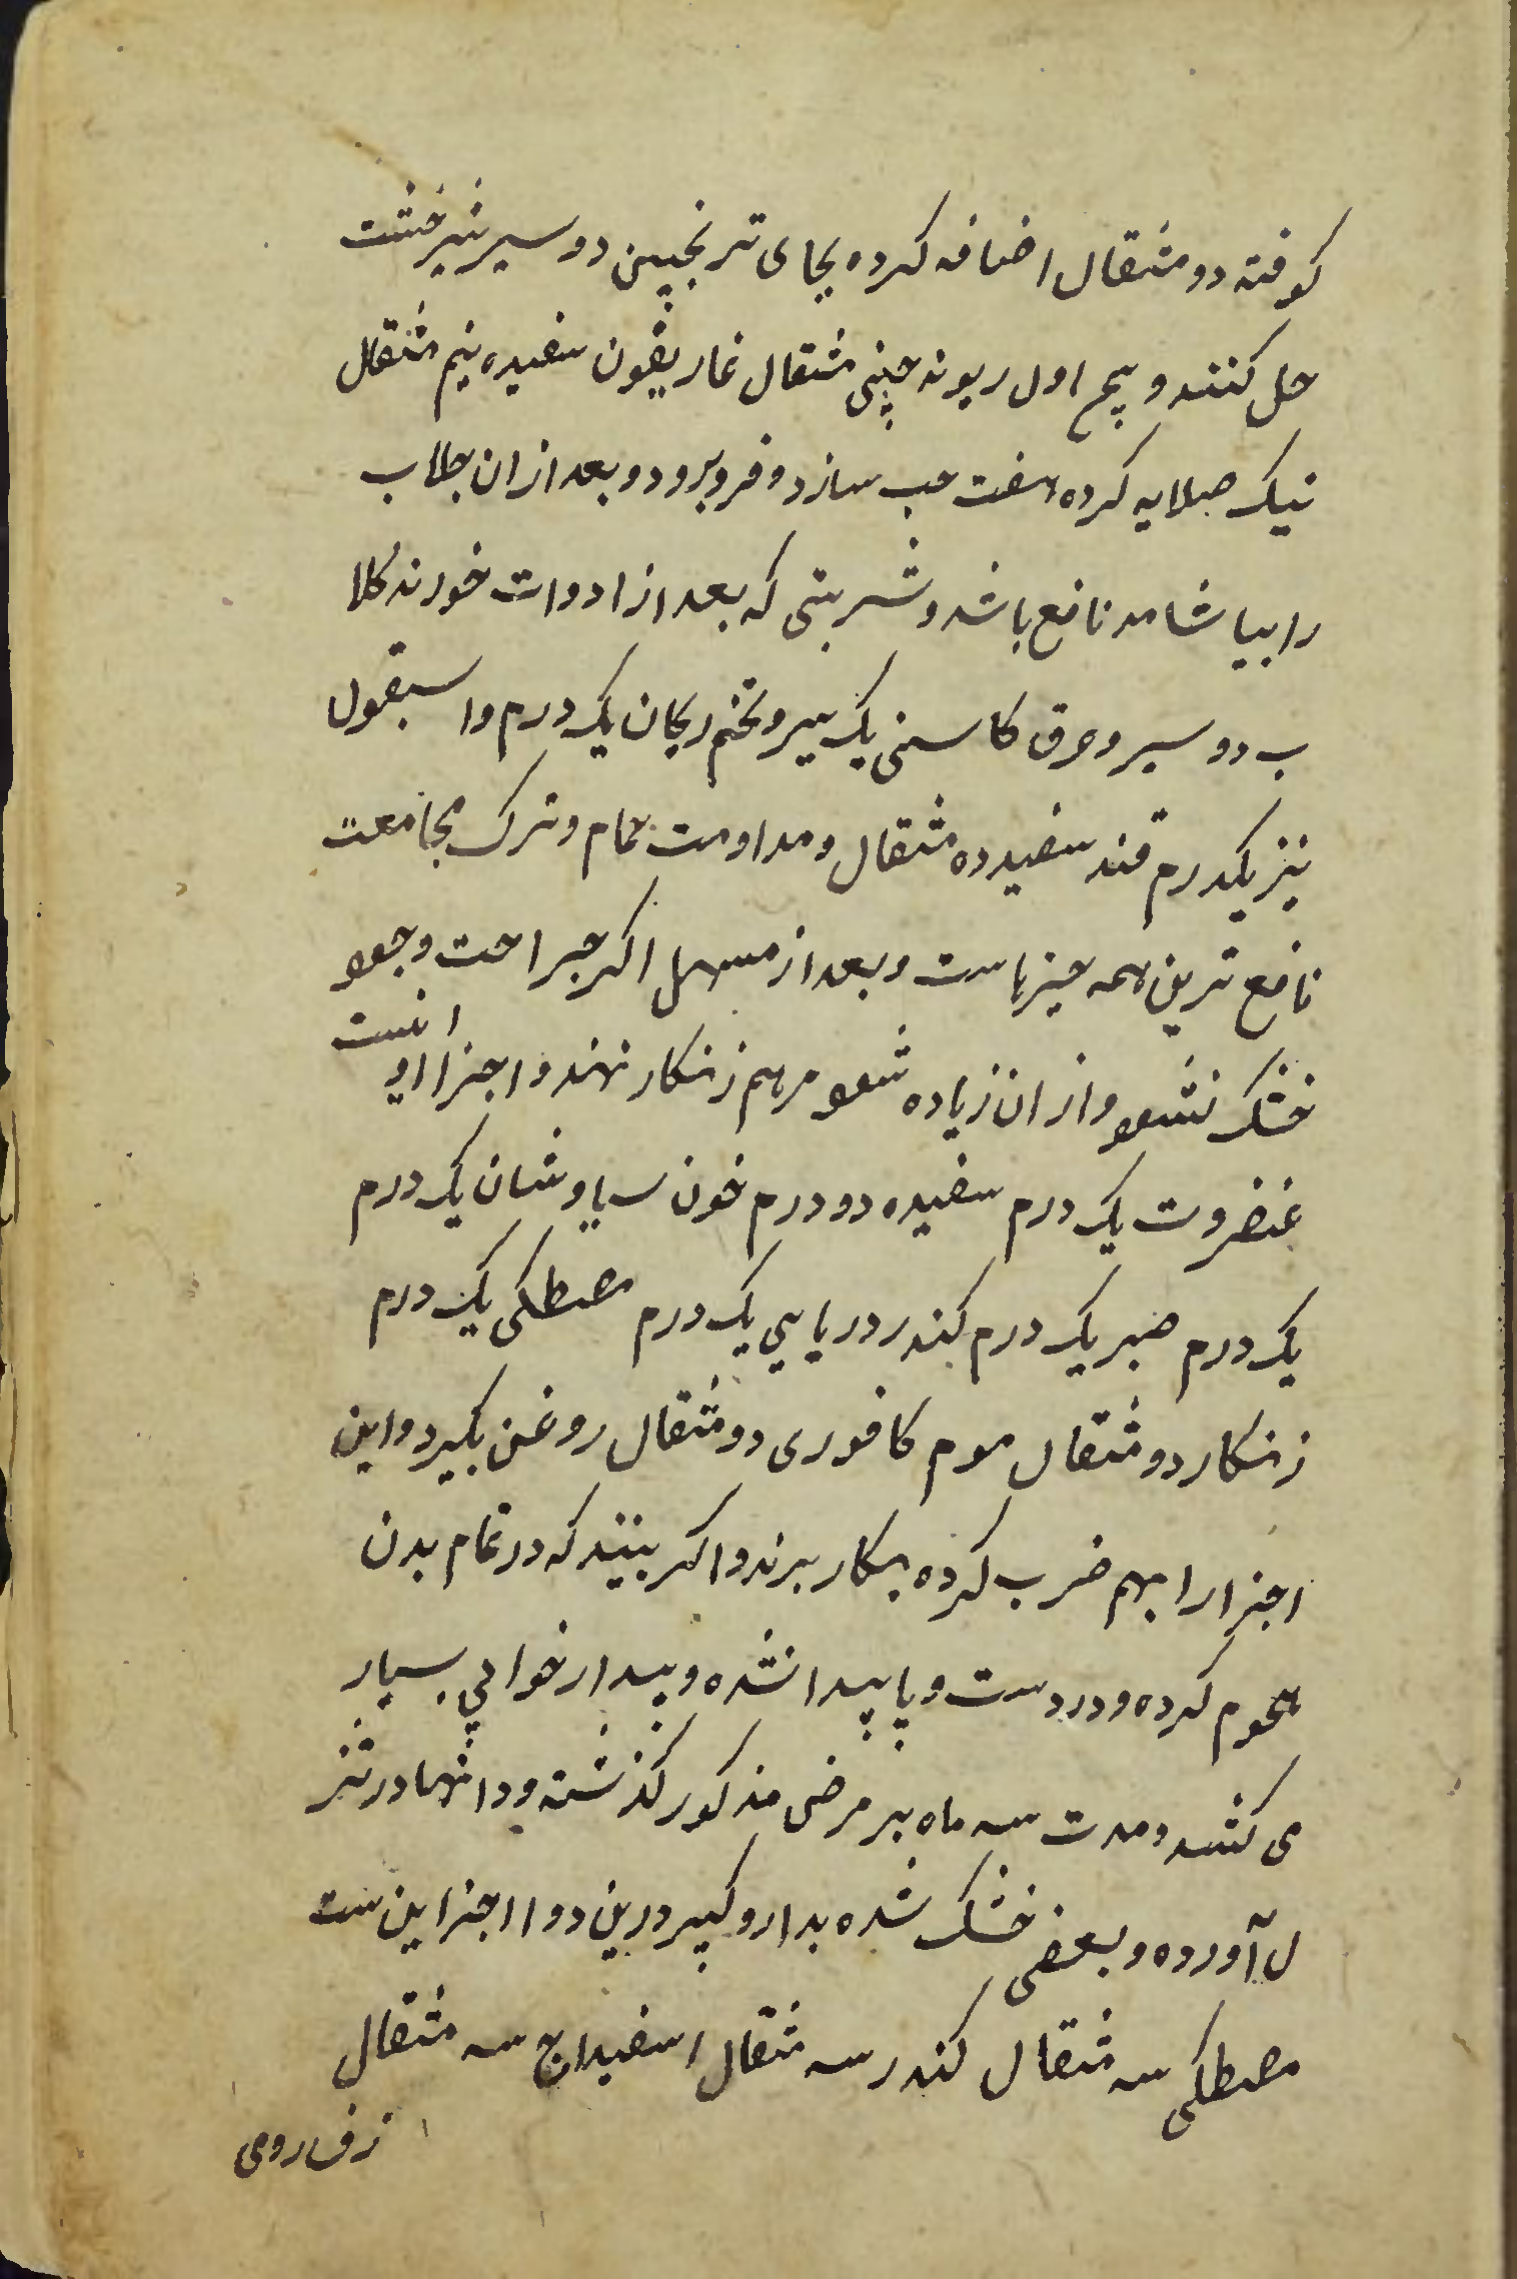 کوفته دو مثقال اضافه کرده بجای ترنجبین دو سیر شیرخشت
حل کنند و پیچ اول ریوند چینی مثقال غاریقون سفیده نیم مثقال
نیک صلایه کرده هفت حب سازد و فرو برود و بعد از ان جلاب
را بیاشامد نافع باشد و شربتی که بعد از ادوات خورند کلا
ب دو سیر و عرق کاسنی یک سیر و تخم ریحان یک درم و اسبقول
نیز یکدرم قند سفید ده مثقال و مداومت حمام و ترک مجامعت
نافع ترین همه چیزهاست و بعد از مسهل اکر جراحت وجعو
خشک نشود و از ان زیاده شود مرهم زنکار نهند و اجزا او انست
عنضروت یک درم سفیده دو درم خون سیاوشان یک درم
یک درم صبر یک درم کندر دریایی یک درم مصطکی یک درم
زنکار دو مثقال موم کافوری دو مثقال روغن بکیرد و این
اجزا را بهم ضرب کرده بکار برند و اکر بینند که در تمام بدن
هجوم کرده و درد دست و پا پیدا نشده و بیدارخوابی بسیار
می کشد و مدت سه ماه بر مرض مذکور کذشته و دانهها در تنز
ل آورده و بعضی خشک شده بدارو کیر درین دوا اجزا این ست
مصطکی سه مثقال کندر سه مثقال اسفیداج سه مثقال
زفت رومی